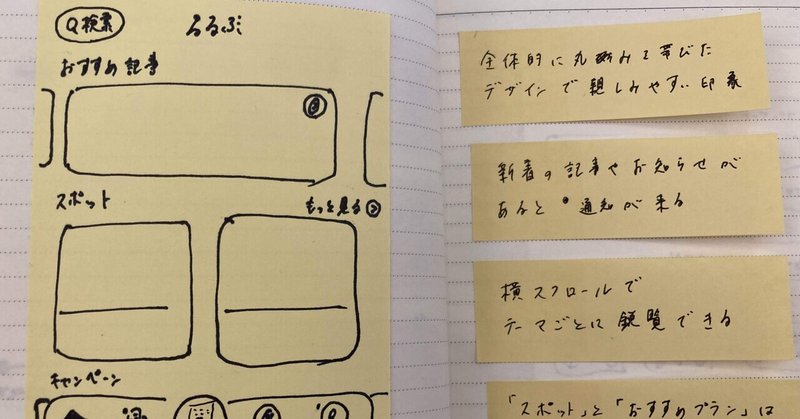 検索
るるぶ
おすすめ記事
スポット
もっと見る
キャンペーン
全体的に丸みを帯びた
デザインで親しみやすい印象
新着の記事やお知らせが
あると 通知が来る
横スクロールで
テーマごとに観覧できる
「スポット」と「おすすめプラン」は